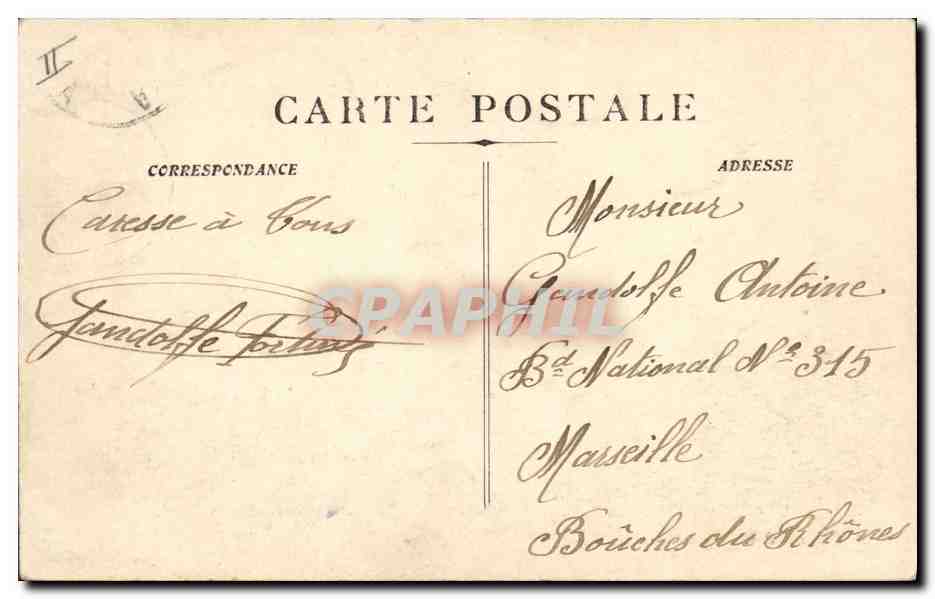 II
CARTE POSTALE
CORRESPONDANCE
ADRESSE
Caresse à Tous
Gandolfe Fortuné
Monsieur
Gandolfe Antoine
Bd National No 315
Marseille
Bouches du Rhônes
CPAPHIL